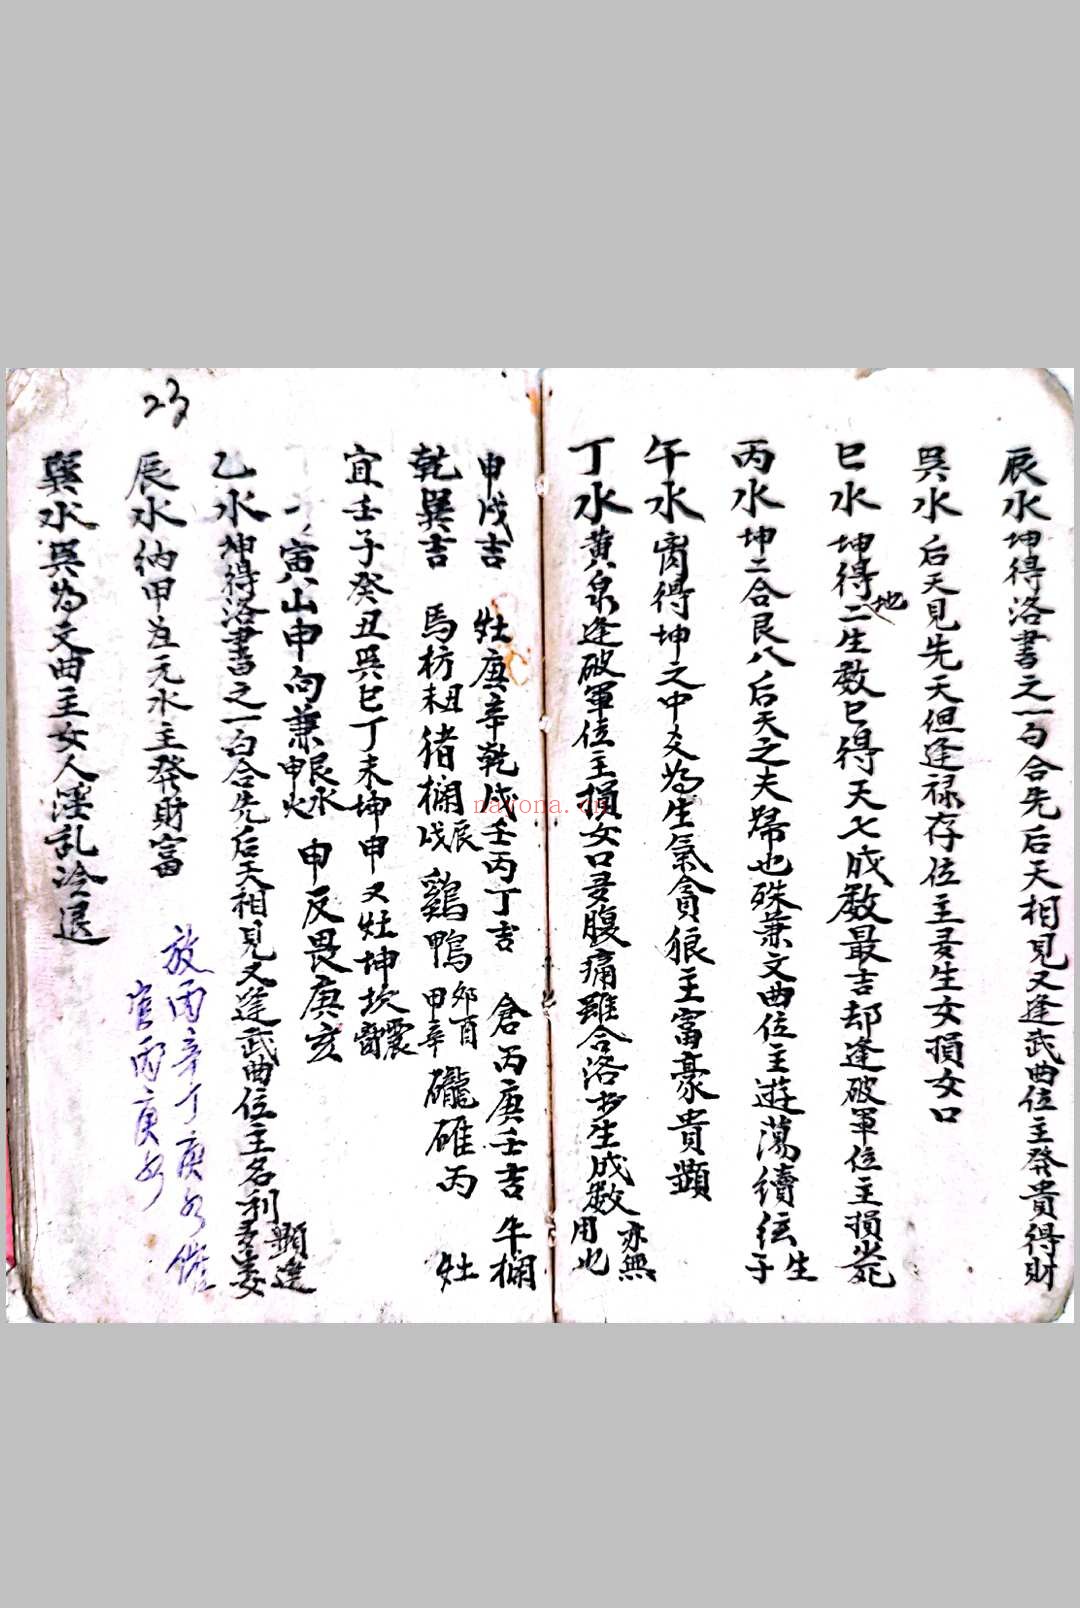 辰水坤得洛書之一勻合先后天相見又逢武曲位主發貴得財
巽水后天見先天但逢禄存位主多生女損女口
巳水坤得二地生数巳得天七成数最吉却逢破軍位主損少死
丙水坤二合艮八后天之夫婦也殊兼文曲位主遊蕩續伝子生
午水离得坤之中爻为生氣貪狼主富豪貴顯
丁水黄泉逢破軍位主損女口多腹痛雖合洛书生成数亦無用也
申戌吉 灶庚辛乾戌壬丙丁吉 倉丙庚壬吉 牛欄
乾巽吉 馬枋丑未猪欄辰戌鷄鴨卯酉甲辛礲碓丙 灶
宜壬子癸丑巽巳丁未坤申又灶坤坎震离
寅山申向兼艮水甲火 申反畏庚亥
乙水坤得洛書之一白合先后天相見又逢武曲位主名利顯進多妻
辰水納甲為元水主發財富
放丙辛丁庚水催
官丙庚水
巽水巽为文曲主女人淫乱冷退
23
nayona.cn